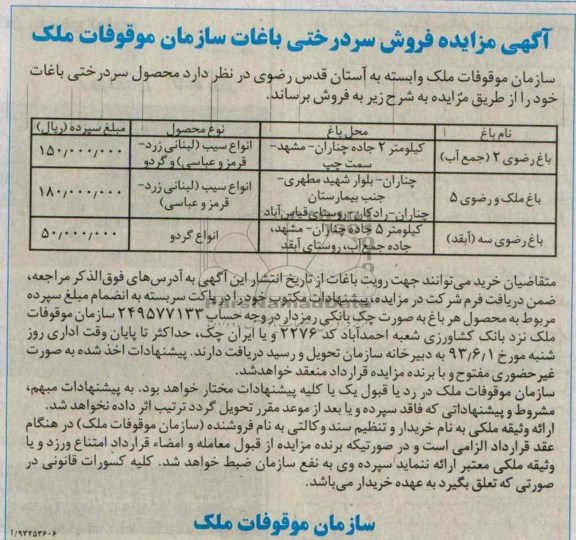 آگهی مزایده فروش سردرختی باغات سازمان موقوفات ملک
سازمان موقوفات ملک وابسته به آستان قدس رضوی در نظر دارد محصول سردرختی باغات
خود را از طریق مزایده به شرح زیر به فروش برساند.
نام باغ محل باغ نوع محصول مبلغ سپرده (ریال)
باغ رضوی ۲ (جمع آب) کیلومتر ۲ جاده چناران- مشهد- سمت چپ انواع سیب (لبنانی زرد- قرمز و عباسی) و گردو ۱۵۰/۰۰۰/۰۰۰
باغ ملک و رضوی ۵ چناران- بلوار شهید مطهری- جنب بیمارستان چناران- رادکان- روستای قیاس‌آباد انواع سیب (لبنانی زرد- قرمز و عباسی) ۱۸۰/۰۰۰/۰۰۰
باغ رضوی سه (آبقد) کیلومتر ۵ جاده چناران- مشهد، جاده جمع‌آب، روستای آبقد انواع گردو ۵۰/۰۰۰/۰۰۰
متقاضیان خرید می‌توانند جهت رویت باغات از تاریخ انتشار این آگهی به آدرس‌های فوق‌الذکر مراجعه،
ضمن دریافت فرم شرکت در مزایده، پیشنهادات مکتوب خود را در پاکت سربسته به انضمام مبلغ سپرده
مربوط به محصول هر باغ به صورت چک بانکی رمزدار در وجه حساب ۲۴۹۵۷۷۱۳۳ سازمان موقوفات
ملک نزد بانک کشاورزی شعبه احمدآباد کد ۲۲۷۶ و یا ایران چک، حداکثر تا پایان وقت اداری روز
شنبه مورخ ۹۳/۶/۱ به دبیرخانه سازمان تحویل و رسید دریافت دارند. پیشنهادات اخذ شده به صورت
غیرحضوری مفتوح و با برنده مزایده قرارداد منعقد خواهدشد.
سازمان موقوفات ملک در رد یا قبول یک یا کلیه پیشنهادات مختار خواهد بود. به پیشنهادات مبهم،
مشروط و پیشنهاداتی که فاقد سپرده و یا بعد از موعد مقرر تحویل گردد ترتیب اثر داده نخواهد شد.
ارائه وثیقه ملکی به نام خریدار و تنظیم سند وکالتی به نام فروشنده (سازمان موقوفات ملک) در هنگام
عقد قرارداد الزامی است و در صورتیکه برنده مزایده از قبول معامله و امضاء قرارداد امتناع ورزد و یا
وثیقه ملکی معتبر ارائه ننماید سپرده وی به نفع سازمان ضبط خواهد شد. کلیه کسورات قانونی در
صورتی که تعلق بگیرد به عهده خریدار می‌باشد.
سازمان موقوفات ملک
۱/۹۳۲۵۳۶۰۶